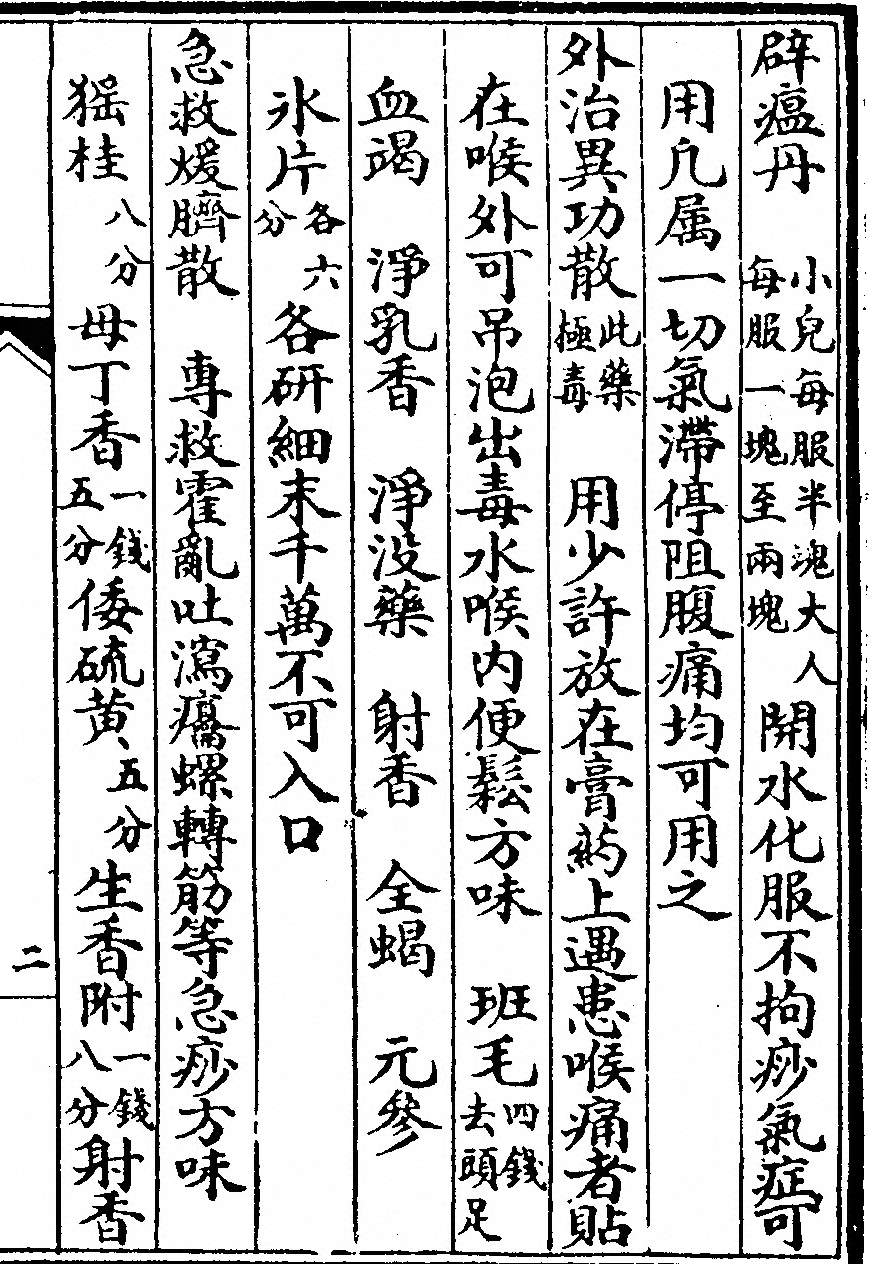 辟瘟丹　小兒每服半塊大人每服一塊至兩塊　開水化服不拘痧氣症可
用凡属一切氣滯停阻腹痛均可用之
外治異功散此藥極毒　用少許放在膏药上遇患喉痛者貼
在喉外可吊泡出毒水喉内便鬆方味　班毛四錢去頭足
血竭　淨乳香　淨没藥　射香　全蝎　元參
氷片各六分　各研細末千萬不可入口
急救煖臍散　專救霍亂吐瀉癟螺轉筋等急痧方味
猺桂八分　母丁香一錢五分　倭硫黄五分　生香附一錢八分　射香
二